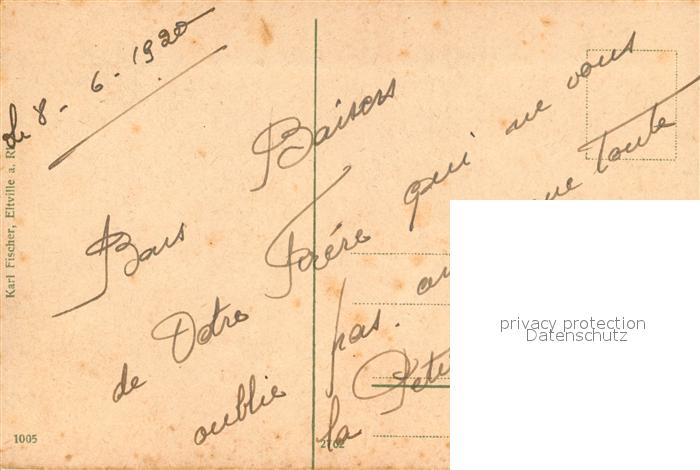 le 8 - 6 - 1920
Bons Baisers
de Votre Frére qui ne vous
oublie pas. que Toute
la
Karl Fischer, Eltville a. R
1005
2762
privacy protection
Datenschutz